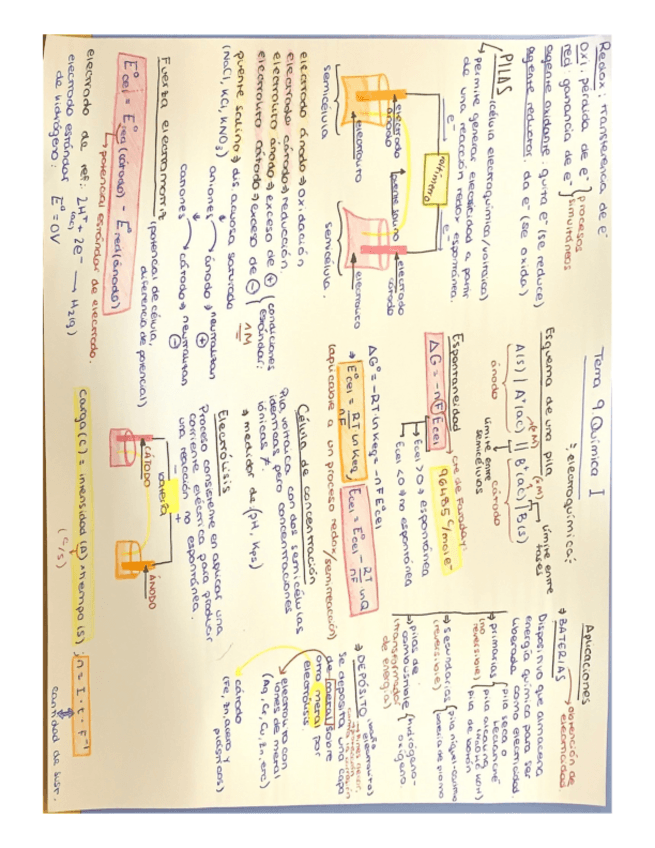 Tema 9. Química I
: electroquímica :
Redox: transferencia de e⁻
Oxi: pérdida de e⁻ } procesos
red: ganancia de e⁻ } simultáneos
agente oxidante: quita e⁻ (se reduce)
agente reductor: da e⁻ (se oxida)
PILAS (célula electroquímica/voltaica)
↳ permite generar electricidad a partir
de una reacción redox espontánea.
e⁻
voltímetro
e⁻
electrodo
ánodo
puente salino
electrodo
cátodo
electrolito
electrolito
semicélula
semicélula.
electrodo ánodo → oxidación
electrodo cátodo → reducción.
electrolito ánodo → exceso de ⊕ (condiciones
electrolito cátodo → exceso de ⊖ estándar:
1M
puente salino → dis. acuosa saturada
(NaCl, KCl, KNO₃)
aniones → ánodo → neutralizan ⊕
cationes → cátodo → neutralizan ⊖
Fuerza electromotriz (potencial de célula,
diferencia de potencial)
E°cel = E°red (cátodo) - E°red (ánodo)
↳ potencial estándar de electrodo.
electrodo de ref: 2H⁺(ac) + 2e⁻ → H₂(g)
electrodo estándar
de hidrógeno: E° = 0V
Esquema de una pila
(1M) (1M) límite entre
fases
A(s) | A⁺(ac) || B⁺(ac) | B(s)
ánodo
límite entre
semicélulas
cátodo
Espontaneidad
cte de Faraday:
ΔG = -nFEcel
96485 C/mol e⁻
Ecel > 0 → espontánea
Ecel < 0 → no espontánea
ΔG° = -RT ln Keq = -nFE°cel
→ E°cel = RT/nF ln Keq
Ecel = E°cel - RT/nF ln Q
(aplicable a un proceso redox/semirreacción)
Célula de concentración
Pila voltaica con dos semicélulas
idénticas pero concentraciones
iónicas ≠.
→ medidor de (pH, Kps)
Electrólisis
Proceso consistente en aplicar una
corriente eléctrica para producir
una reacción no espontánea.
- batería +
CÁTODO
ÁNODO
Carga (C) = intensidad (A) × tiempo (s) ; n = I · t · F⁻¹
(C/s)
cantidad de sust.
Aplicaciones
obtención de
electricidad
→ BATERIAS
Dispositivo que almacena
energía química para ser
liberada como electricidad.
→ primarias (no reversible)
pila seca o
Leclanché
pila alcalina
pila de botón
→ secundarias (reversible)
pila níquel-cadmio
batería de plomo
→ pilas de
combustible
(transformador
de energía)
hidrógeno-
oxígeno.
→ DEPÓSITO
Se deposita una capa
de metal sobre
otro metal por
electrólisis.
electrolito con
iones de metal
cátodo